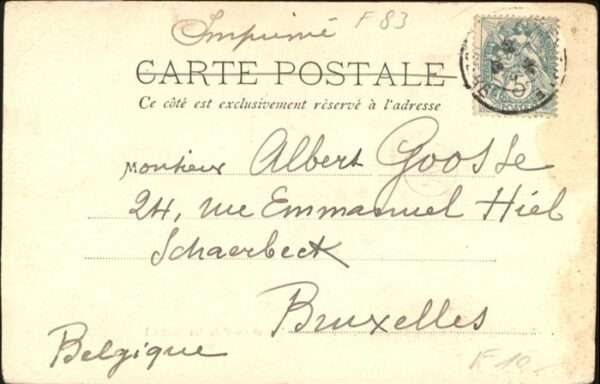 Imprimé F 83
CARTE POSTALE
Ce côté est exclusivement réservé à l'adresse
Monsieur Albert Goosse
24, rue Emmanuel Hiel
Schaerbeek
Bruxelles
Belgique
F 10